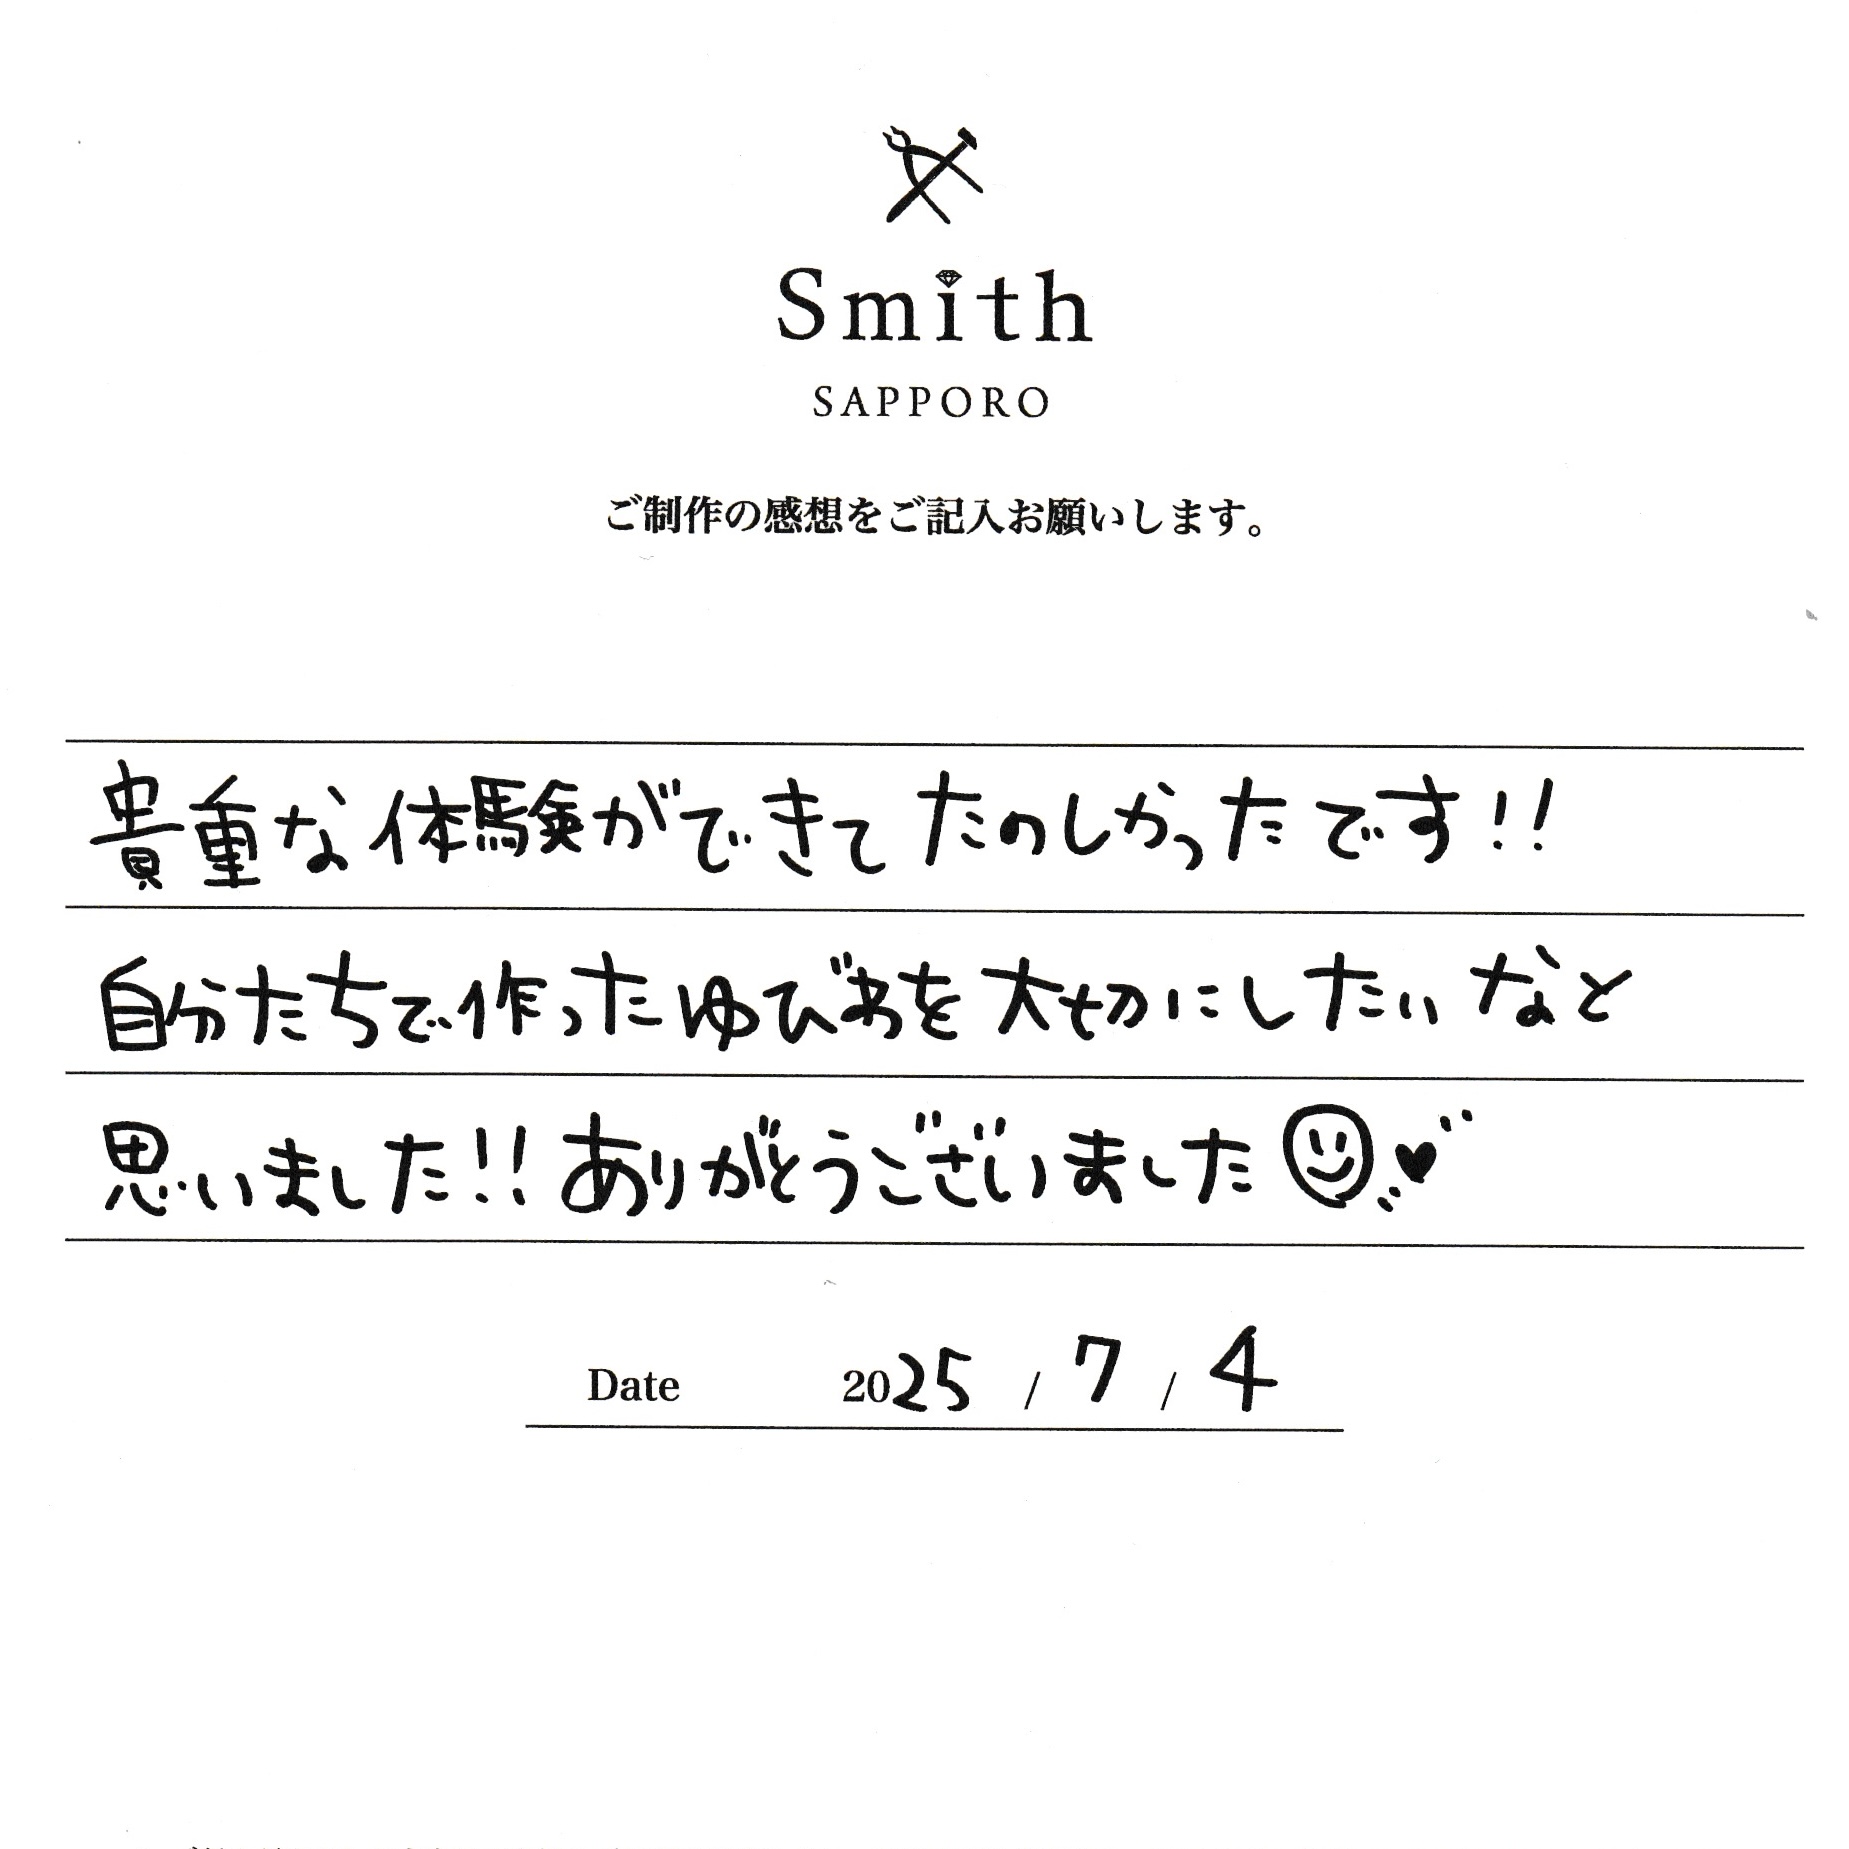 Smith
SAPPORO
ご制作の感想をご記入お願いします。
貴重な体験ができてたのしかったです!!
自分たちで作ったゆびわを大切にしたいなと
思いました!!ありがとうございました
Date 2025 / 7 / 4